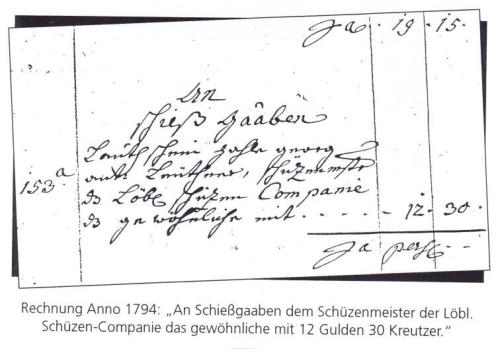 Ja · 19 · 15 ·
An
schieß Gaaben
Lauth schein zahle georg
153 a
schüzenmstr
Löbl schüzen Companie
gewöhnliche mit · · · · - 12 · 30 ·
Ja per se · ·
Rechnung Anno 1794: „An Schießgaaben dem Schüzenmeister der Löbl.
Schüzen-Companie das gewöhnliche mit 12 Gulden 30 Kreutzer.“